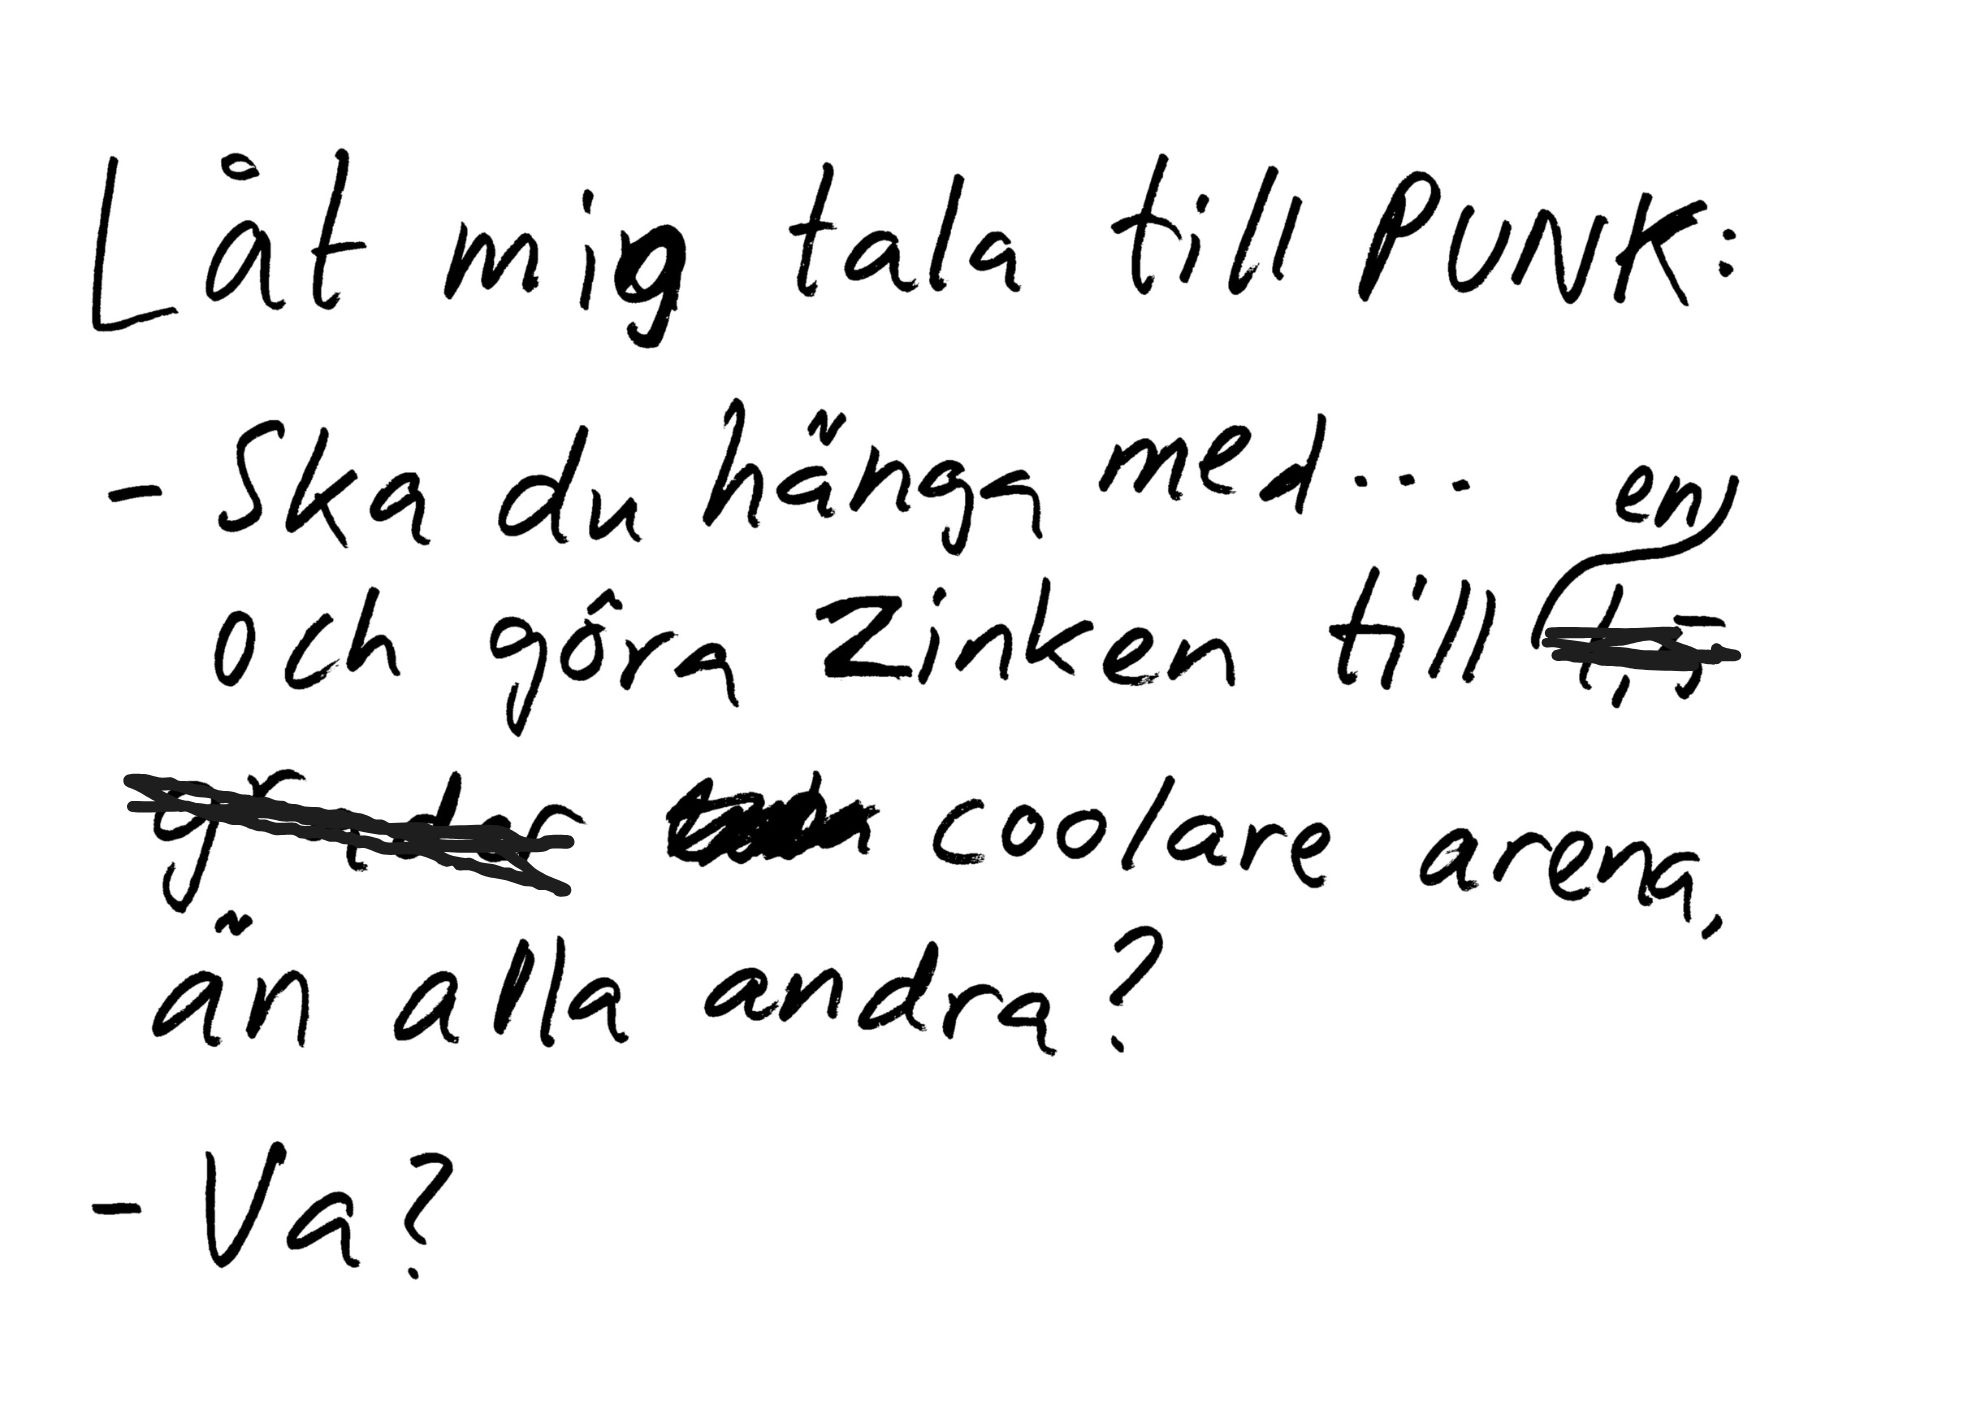 Låt mig tala till PUNK:
- Ska du hänga med...
och göra Zinken till en
coolare arena,
än alla andra?
- Va?